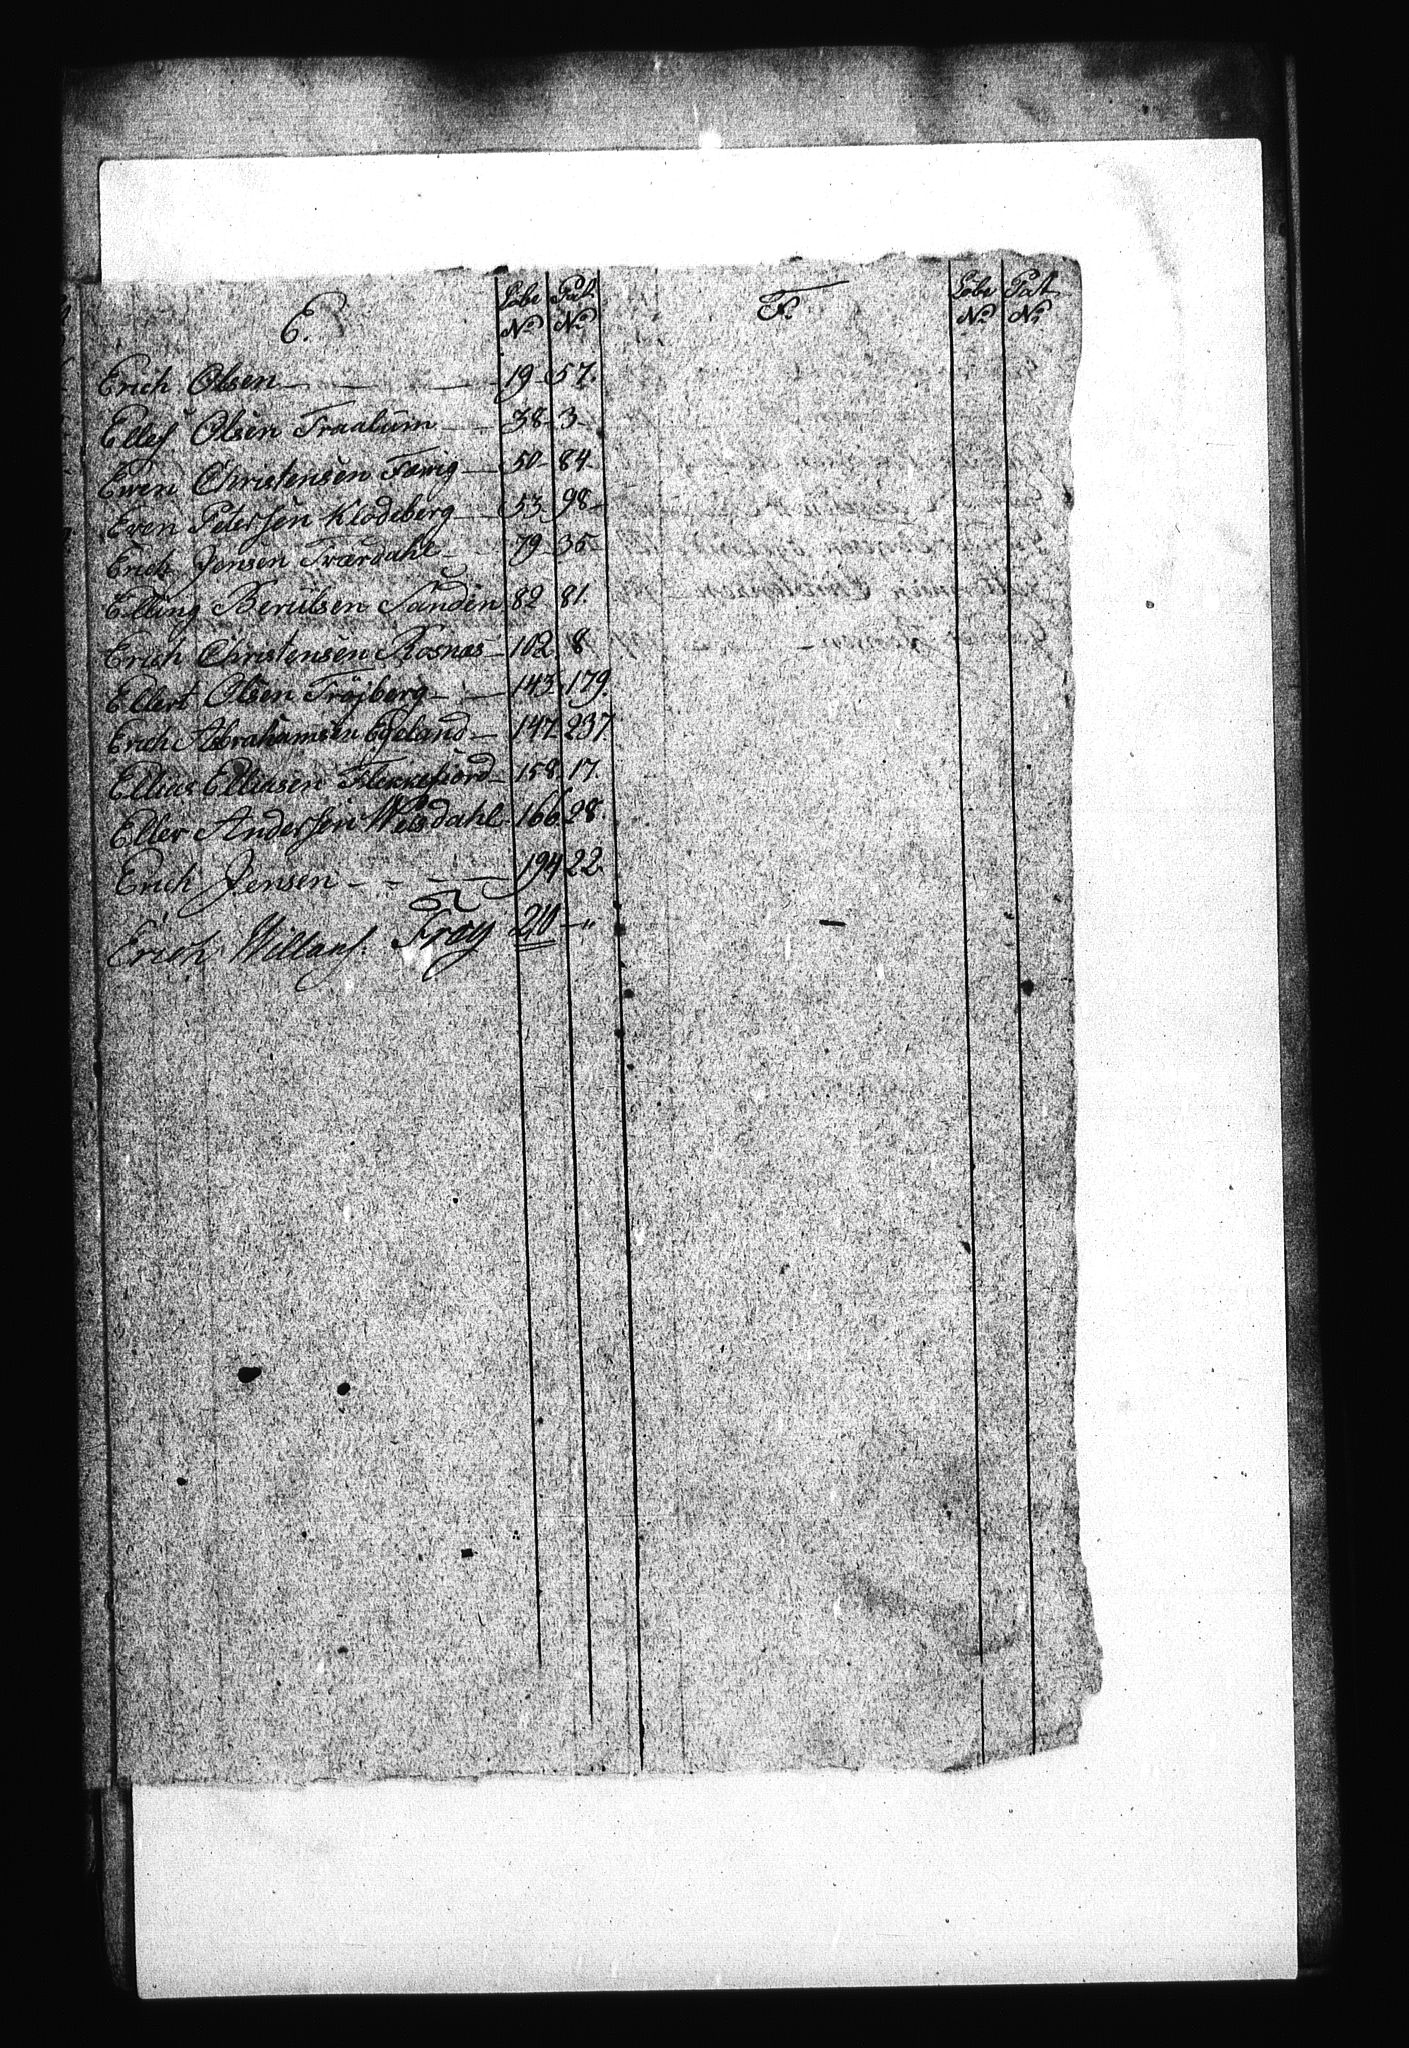 E. Löbe No Pat No
Erich Olsen 19 57.
Ellef Olsen Traalum 38 3
Even Christensen 50 84
Even Petersen Klodeberg 53 98
Erich Jensen Trærdahl 79 35
Elling Berulsen Sanden 82 81.
Erich Christensen Rosnæs 102 8
Ellert Olsen Tröjberg 143 179.
Erich Abrahamsen Egeland 147 237
Ellias Elliasen Flekkefiord 158 17.
Eller Andersen Weisdahl 166 28.
Erich Jensen 194 22.
Erich Willars. Tröy 210 "
F. Löbe No Pat No
—